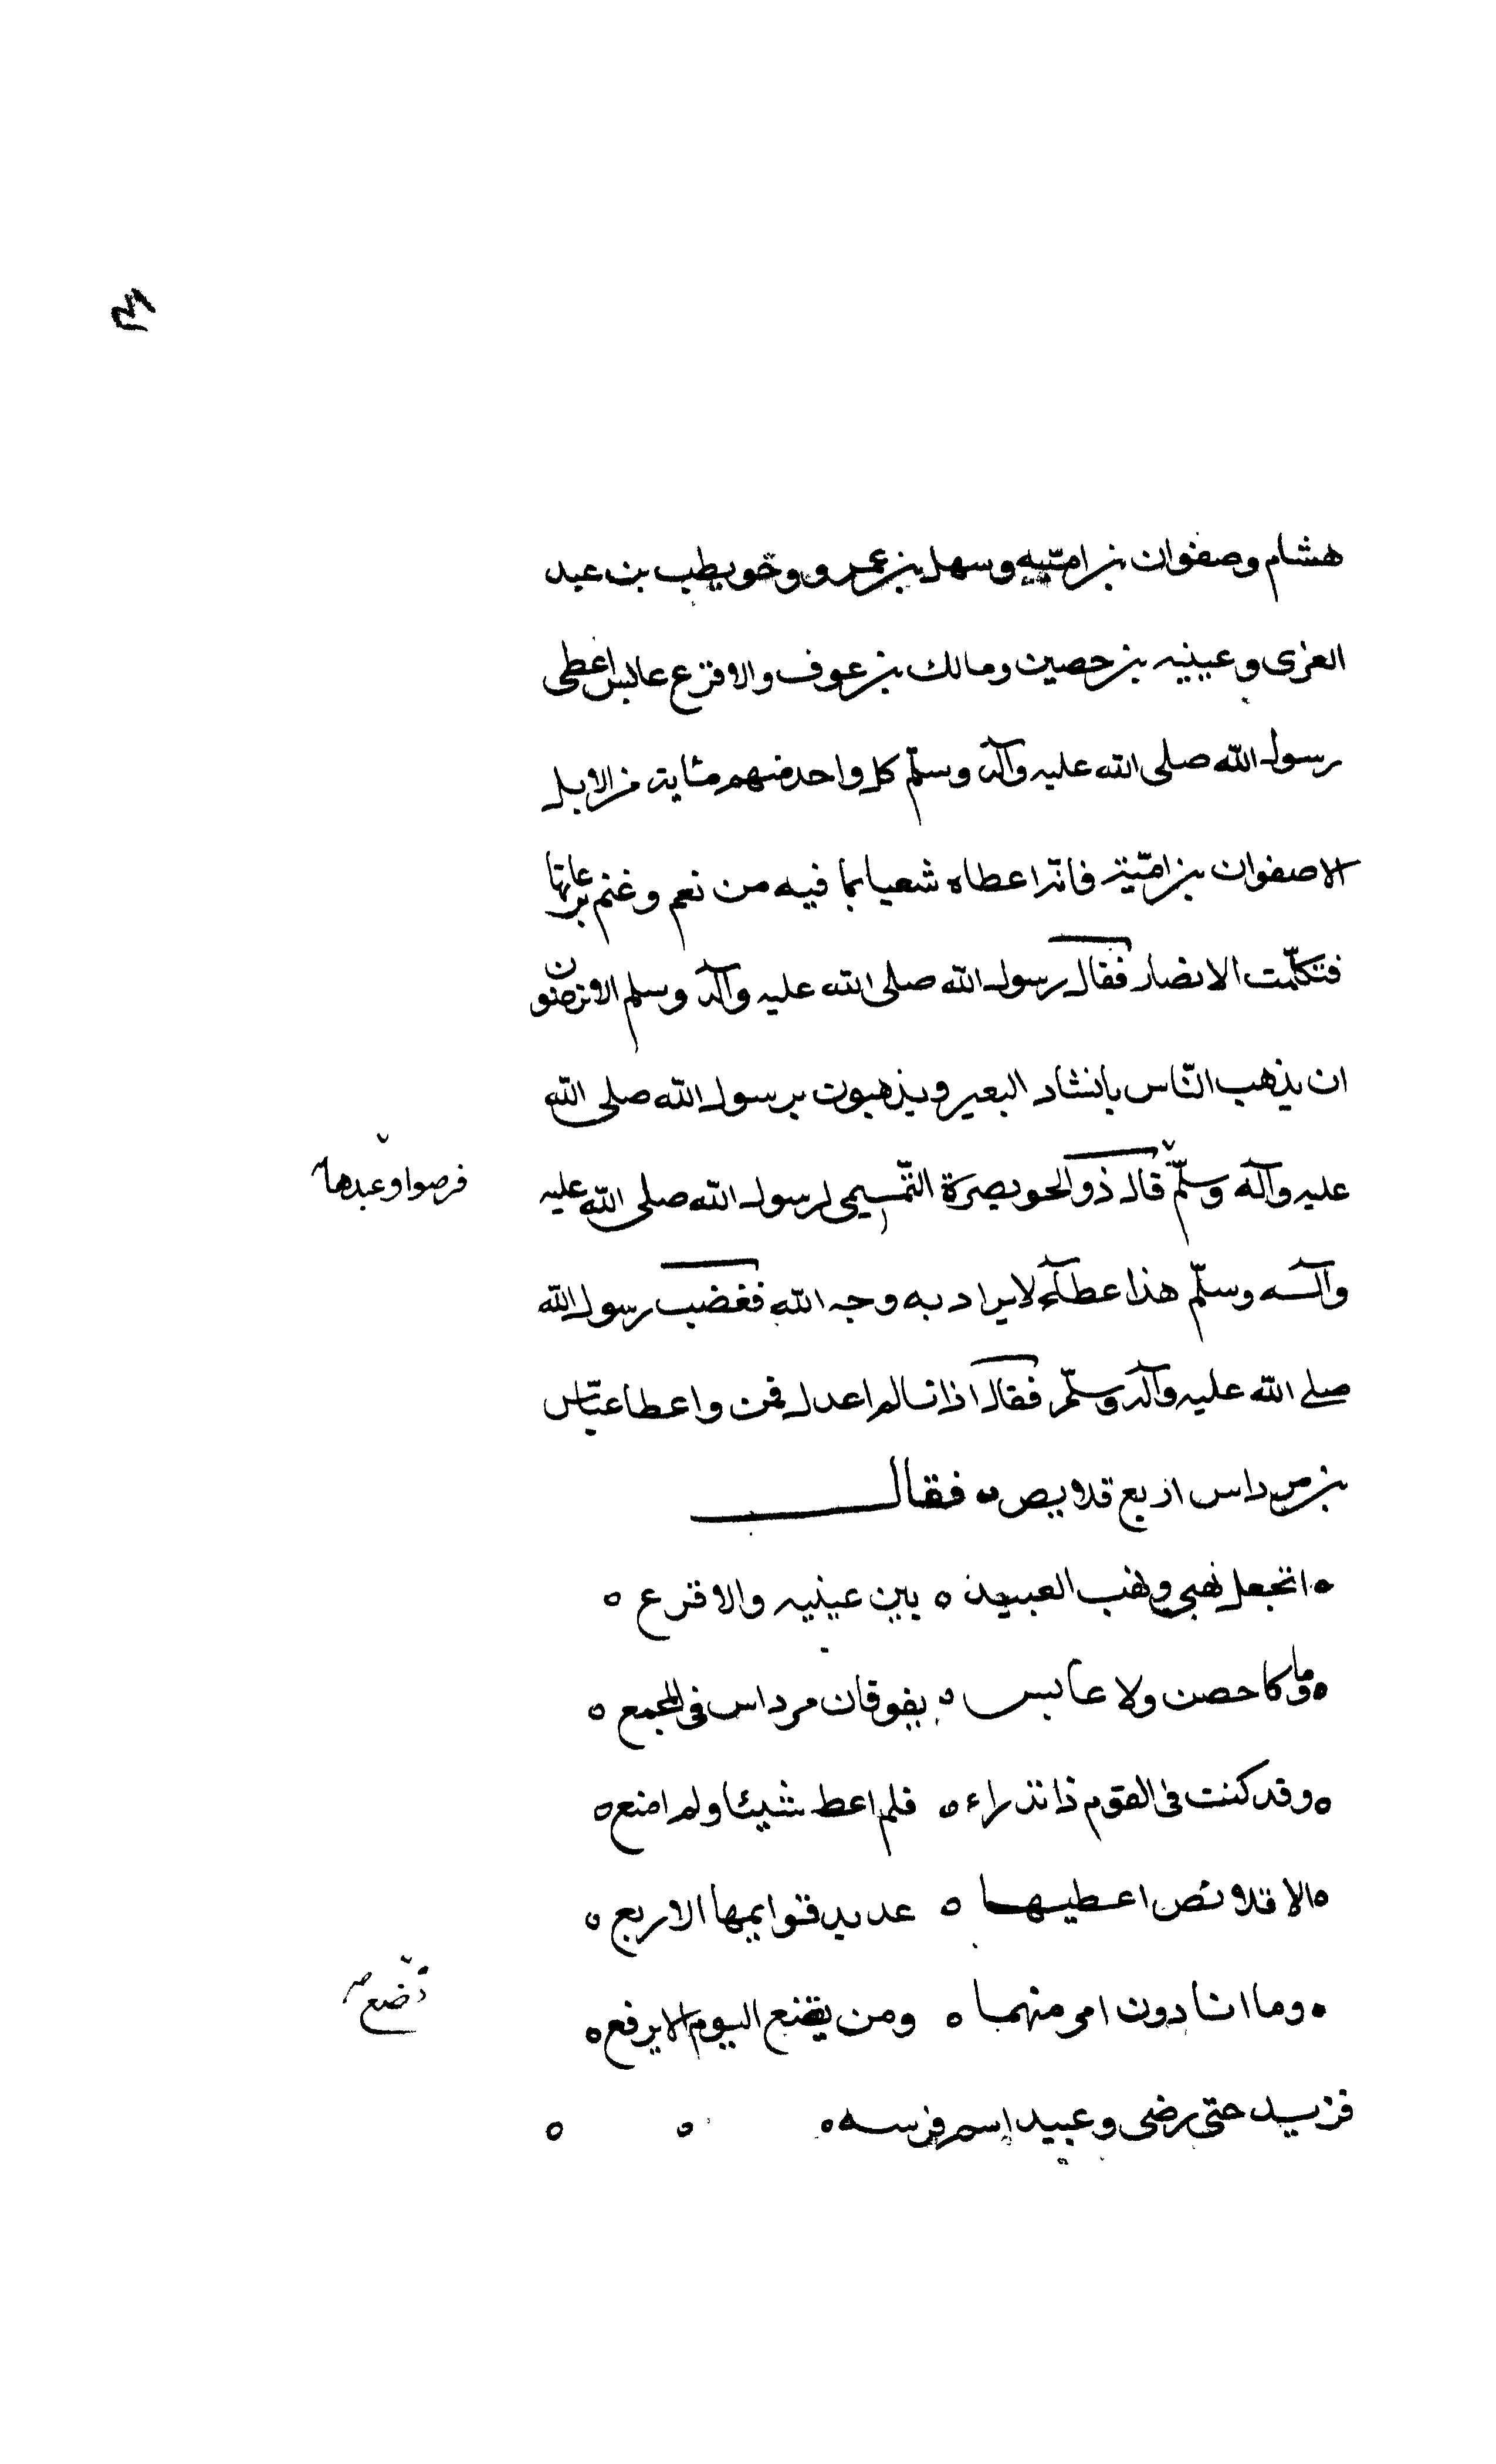 هشام وصفوان بن اميّيه وسهل بن عمرو وحويطب بن عبد
العزى وعيينه بن حصين ومالك بن عوف والاقرع عابس اعطى
رسول الله صلى الله عليه وآله وسلّم كل واحد منهم مئاية من الابل
الا صفوان بن اميّة فانه اعطاه شعبا بما فيه من نعم وغنم برعاتها
فتكلّمت الانصار فقال رسول الله صلى الله عليه وآله وسلم الا ترضون
ان يذهب النّاس بالشاد البعير ويذهبون برسول الله صلى الله
عليه وآله وسلّم قال ذو الحويصرة التّميمى لرسول الله صلى الله عليه
فرضوا وعبدها
وآله وسلّم هذا عطآء لا يراد به وجه الله فغضب رسول الله
صلى الله عليه وآله وسلّم فقال اذا انا لم اعدل فمن واعطا عبّاس
بن مرداس اربع قلايص ه فقال
ه اتجعل نهبى ونهب العبيد ه بين عيينيه والاقرع ه
ه وما كا حصن ولا عابس ه يفوقان مرداس فى المجمع ه
ه وقد كنت فى القوم ذا تدراء ه فلم اعط شيئا ولم امنع ه
ه الا قلائص اعطيها ه عديد قوايمها الاربع ه
ه وما انا دون امر منهما ه ومن يقنع اليوم لا يرفع ه
تضع
فزيد حتى رضى وعبيد اسم فرسه ه ه ه